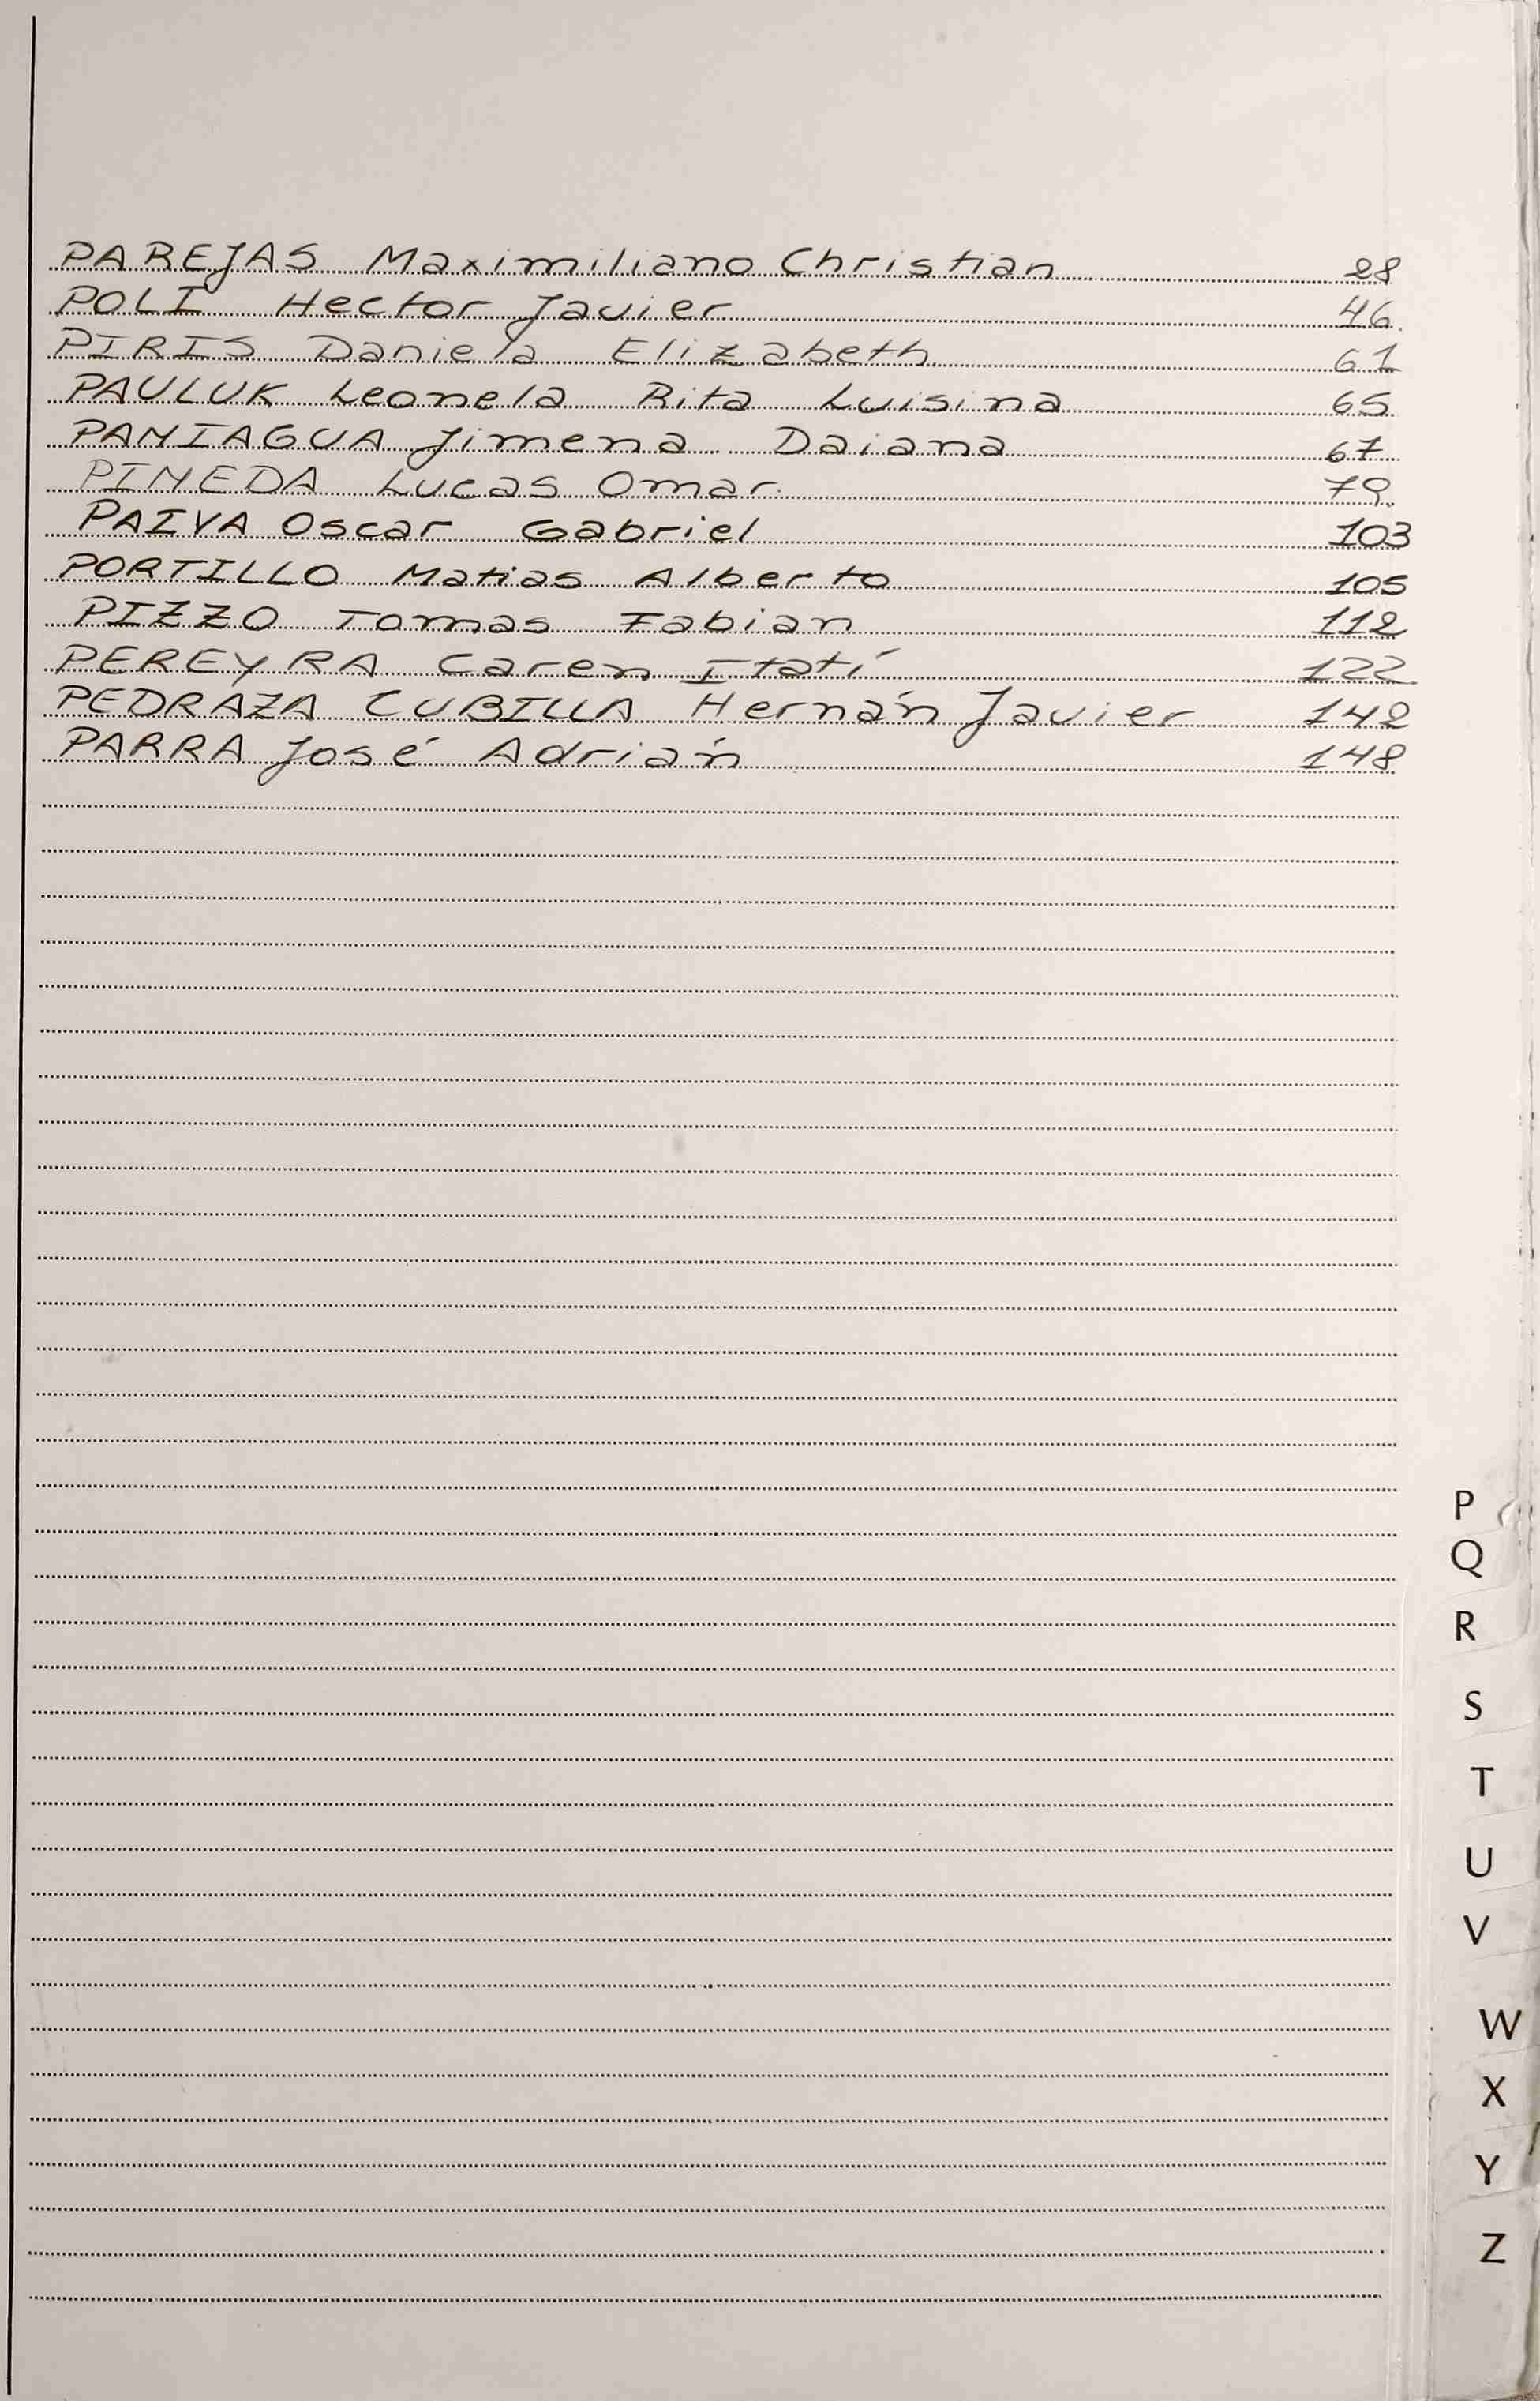 PAREJAS Maximiliano Christian 28
POLI Hector Javier 46
PIRIS Daniela Elizabeth 61
PAULUK Leonela Rita Luisina 65
PANIAGUA Jimena Daiana 67
PINEDA Lucas Omar. 79
PAIVA Oscar Gabriel 103
PORTILLO Matias Alberto 105
PIZZO Tomas Fabian 112
PEREYRA Caren Itatí 122
PEDRAZA CUBILLA Hernán Javier 142
PARRA José Adrián 148
P
Q
R
S
T
U
V
W
X
Y
Z